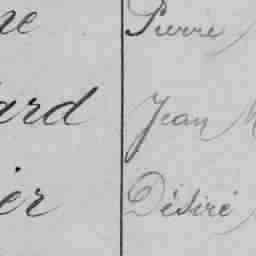 ne Pierre
ard Jean M
ier Désiré